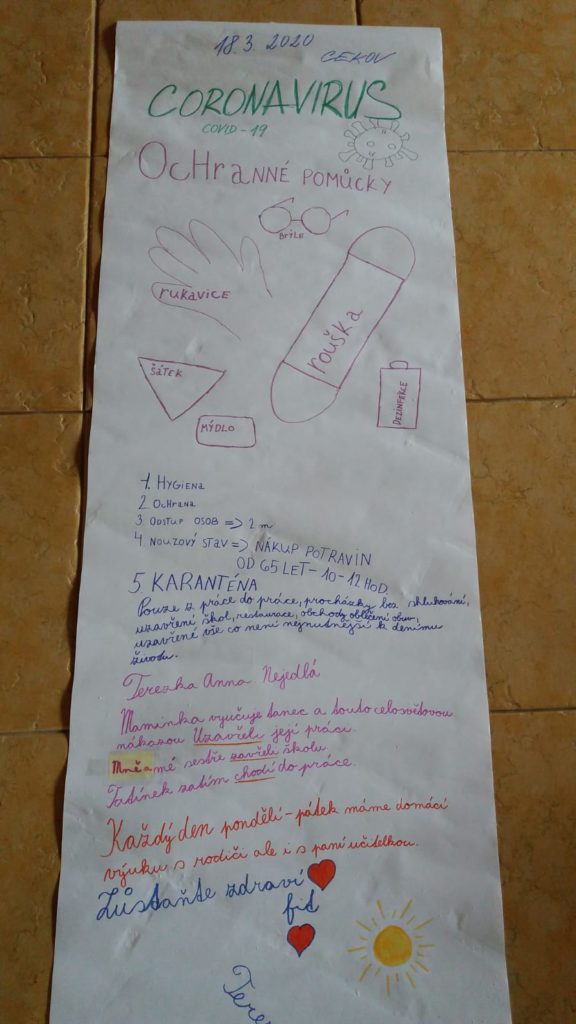 18.3.2020
CEKOV
CORONAVIRUS
COVID-19
OCHRANNÉ POMŮCKY
BRÝLE
rukavice
rouška
ŠÁTEK
MÝDLO
DEZINFEKCE
1. HYGIENA
2. OCHRANA
3 ODSTUP OSOB => 2 m
4. NOUZOVÝ STAV => NÁKUP POTRAVIN
OD 65 LET - 10-12 HOD.
5. KARANTÉNA
Pouze z práce do práce, procházky bez shlukování,
uzavření škol, restaurace, obchody oblečení obuv,
uzavřené vše co není nejnutnější k denímu
životu.
Terezka Anna Nejedlá
Maminka vyučuje tanec a touto celosvětovou
nákazou Uzavřeli její práci.
Mně a mé sestře zavřeli školu.
Tatínek zatím chodí do práce.
Každý den pondělí - pátek máme domácí
výuku s rodiči ale i s paní učitelkou.
Zůstaňte zdraví
fit